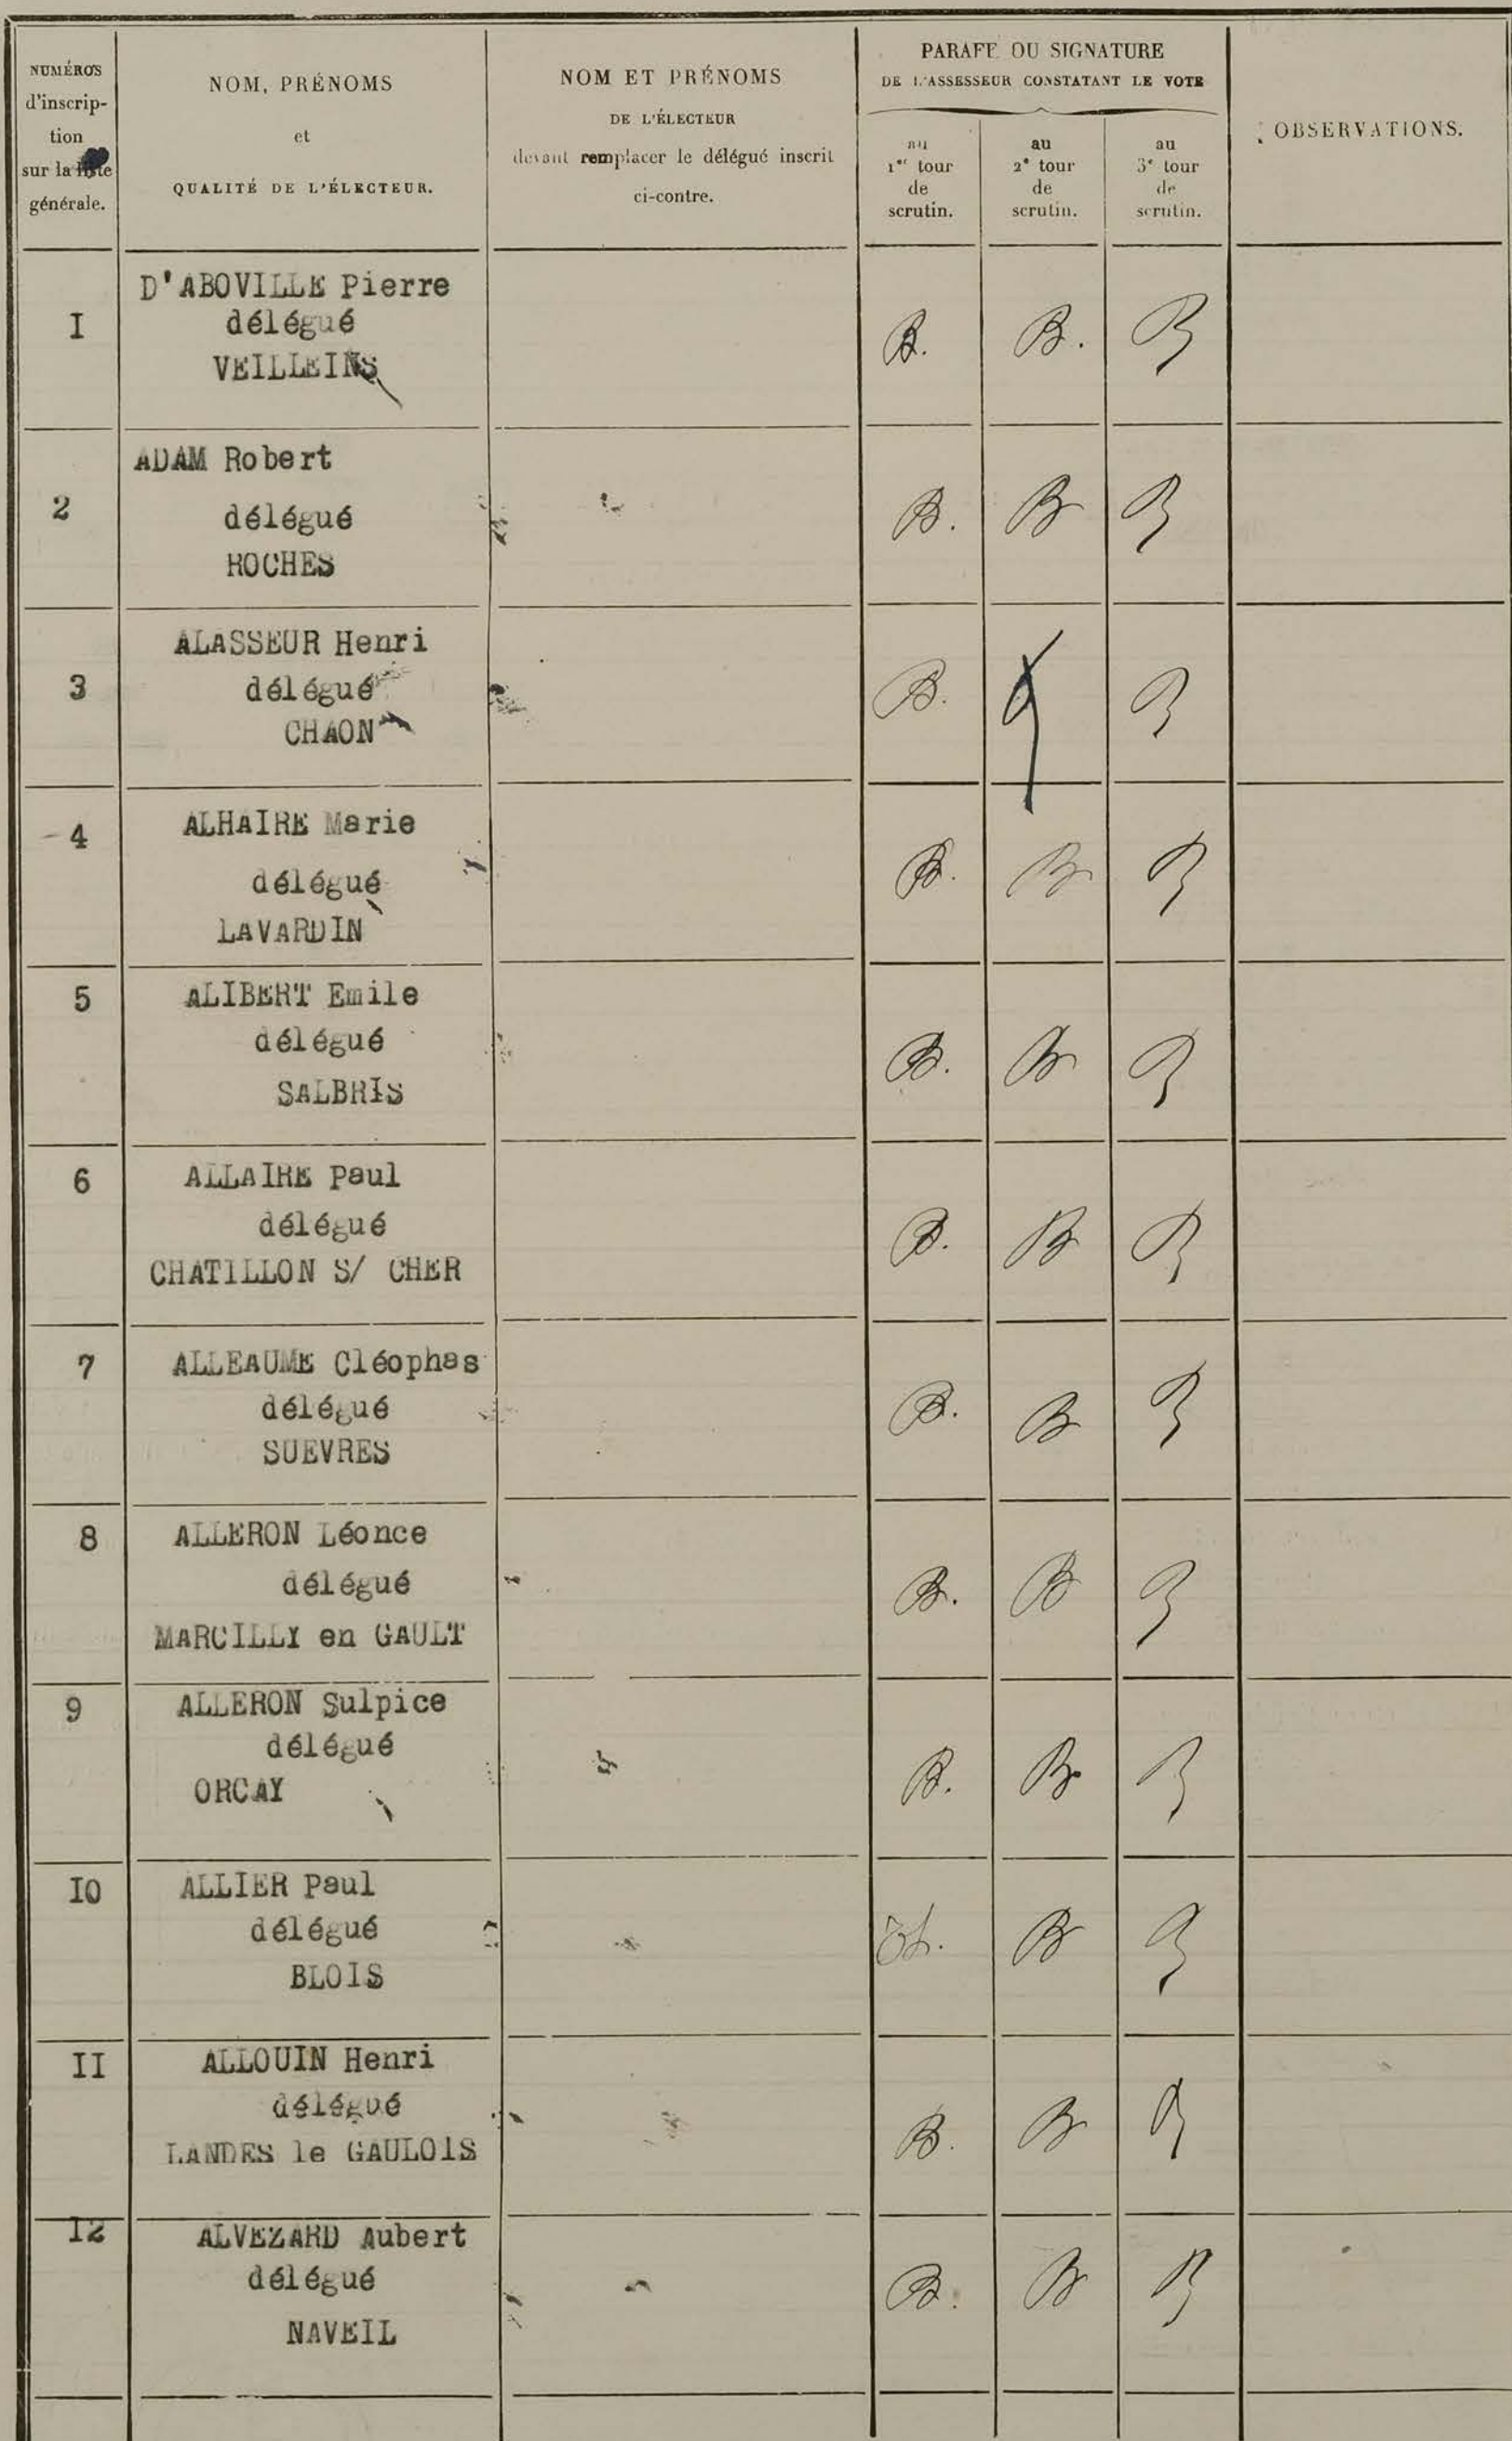 NUMÉROS
d'inscrip-
tion
sur la liste
générale.
NOM, PRÉNOMS
et
QUALITÉ DE L'ÉLECTEUR.
NOM ET PRÉNOMS
DE L'ÉLECTEUR
devant remplacer le délégué inscrit
ci-contre.
PARAFE OU SIGNATURE
DE L'ASSESSEUR CONSTATANT LE VOTE
au
1er tour
de
scrutin.
au
2e tour
de
scrutin.
au
3e tour
de
scrutin.
OBSERVATIONS.
I
D'ABOVILLE Pierre
délégué
VEILLEINS
B. B. B
2
ADAM Robert
délégué
ROCHES
B. B B
3
ALASSEUR Henri
délégué
CHAON
B. B
4
ALHAIRE Marie
délégué
LAVARDIN
B. B B
5
ALIBERT Emile
délégué
SALBRIS
B. B B
6
ALLAIRE Paul
délégué
CHATILLON S/ CHER
B. B B
7
ALLEAUME Cléophas
délégué
SUEVRES
B. B B
8
ALLERON Léonce
délégué
MARCILLY en GAULT
B. B B
9
ALLERON Sulpice
délégué
ORCAY
B. B B
IO
ALLIER Paul
délégué
BLOIS
B B
II
ALLOUIN Henri
délégué
LANDES le GAULOIS
B. B B
I2
ALVEZARD Aubert
délégué
NAVEIL
B. B B